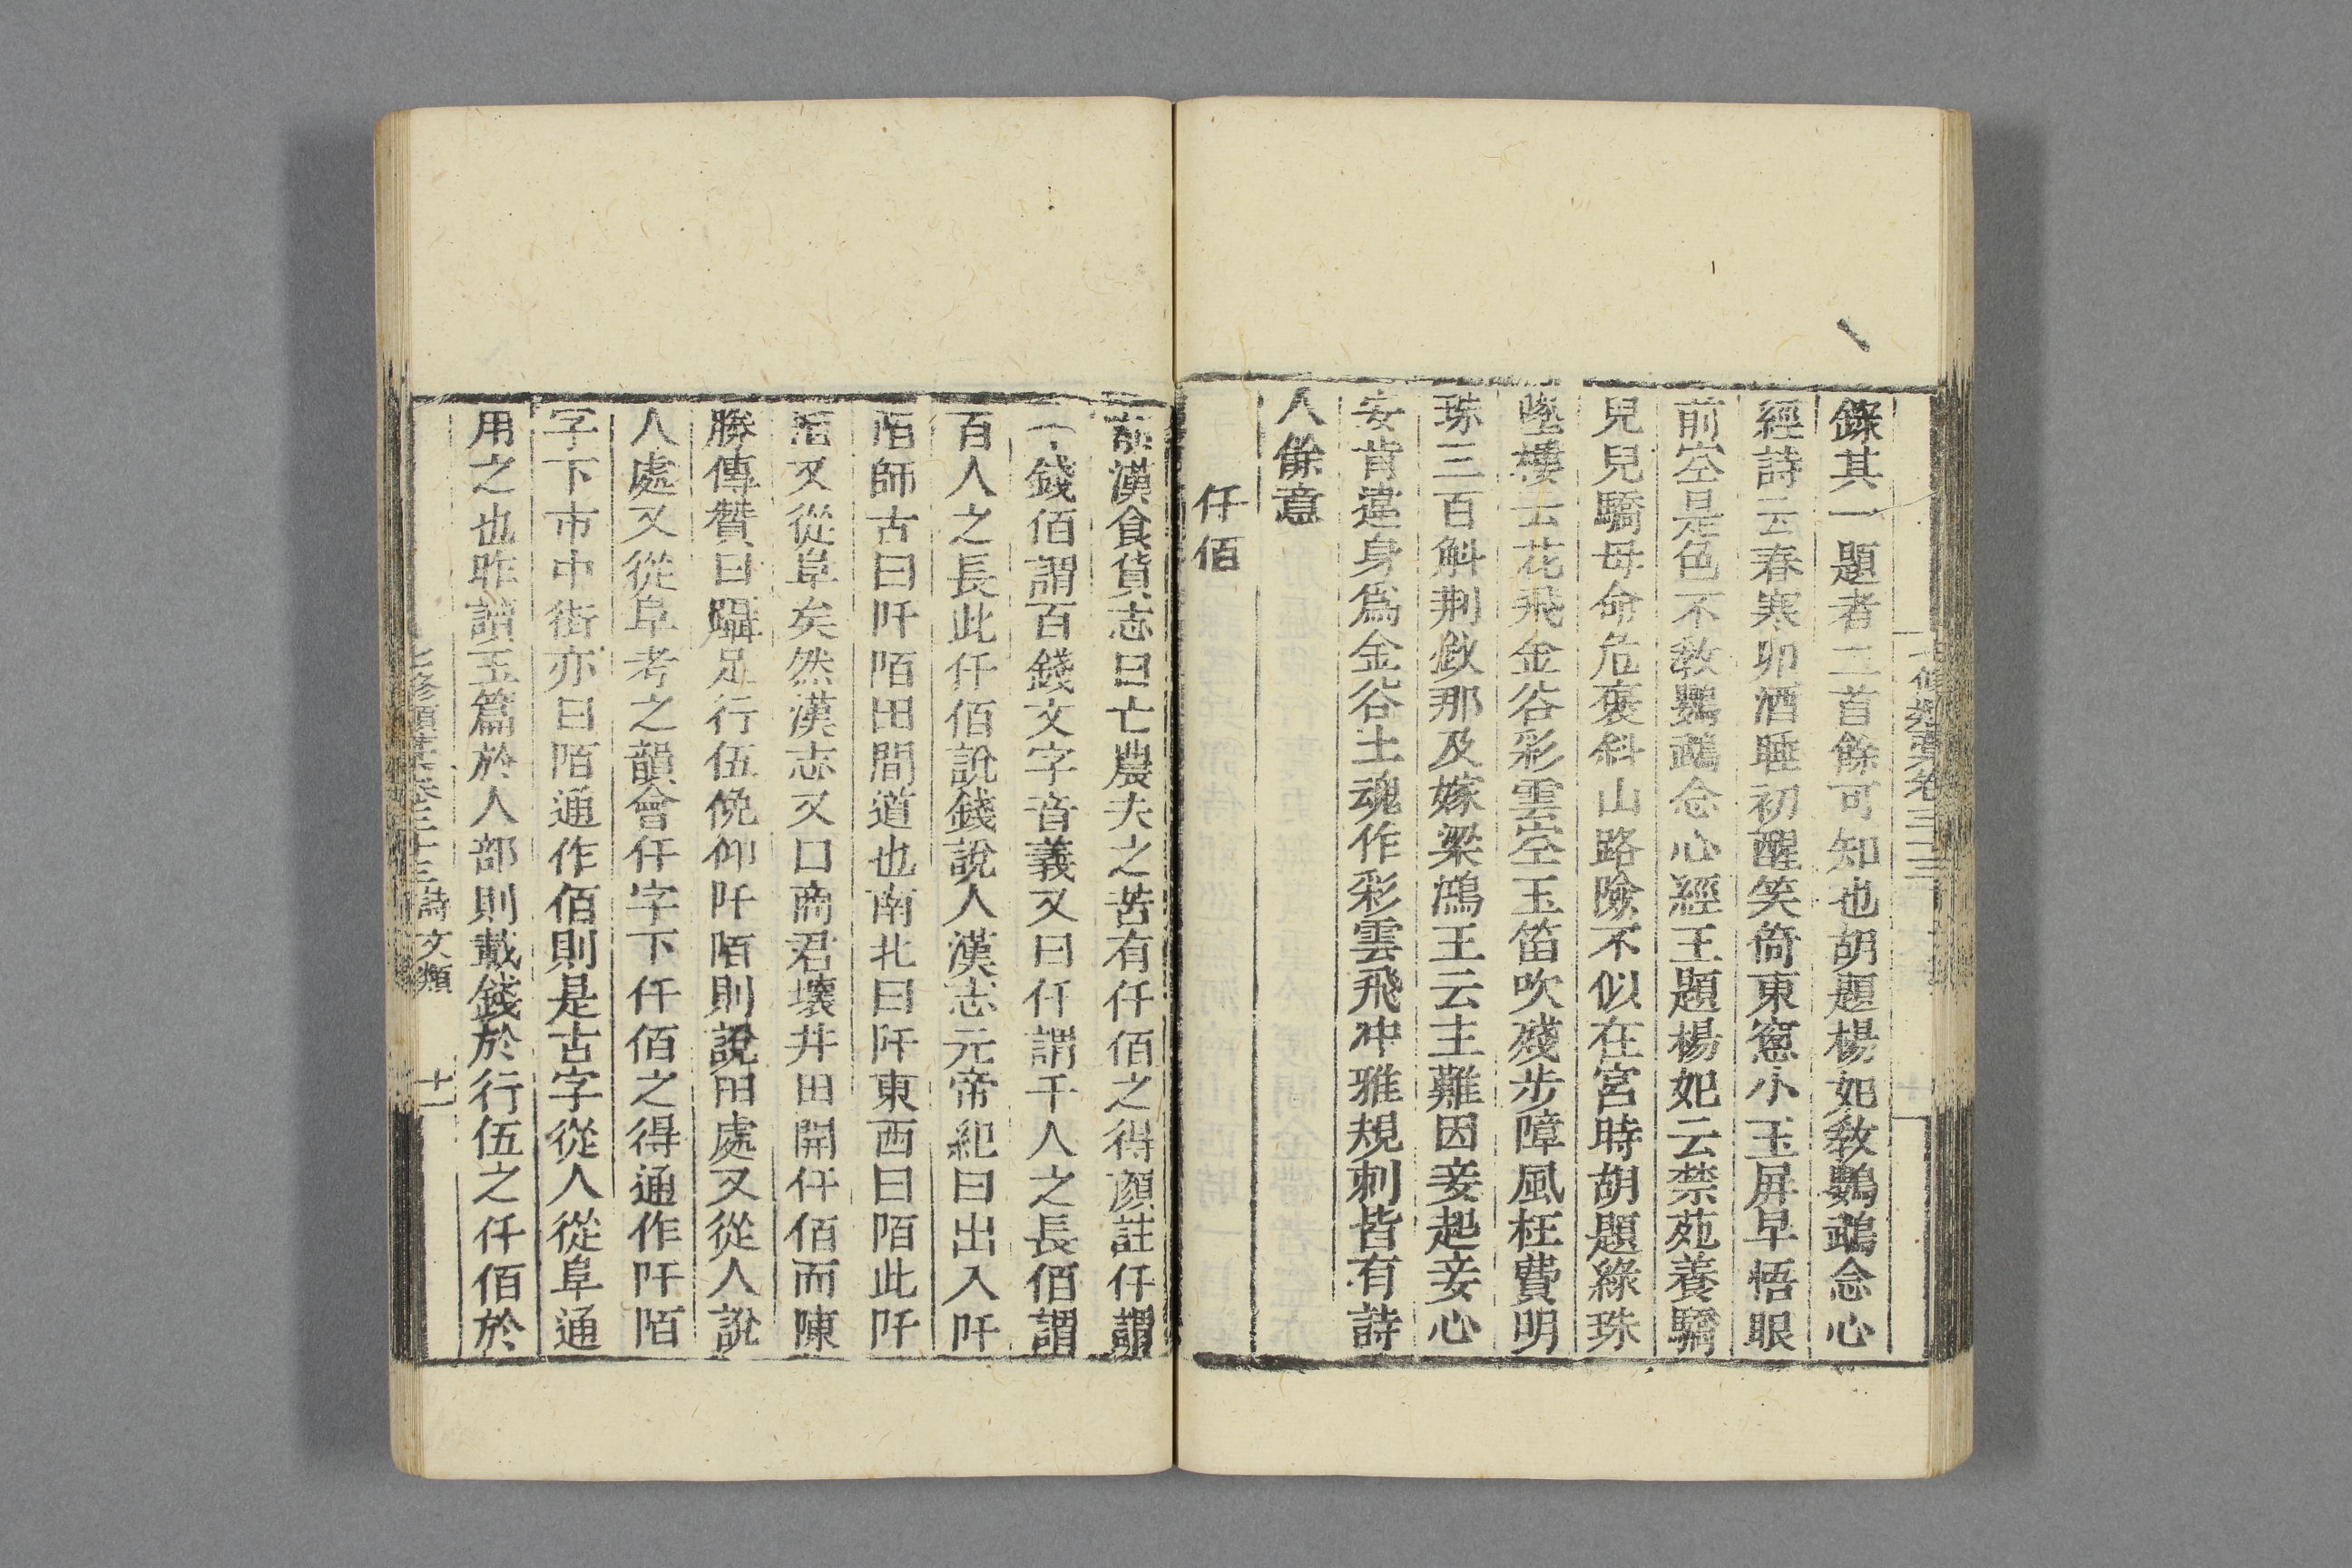 七修類藁卷三十三
錄其一題者二首餘可知也胡題楊妃敎鸚鵡念心
經詩云春寒卯酒睡初醒笑倚東窻小玉屏早悟眼
前空是色不敎鸚鵡念心經王題楊妃云禁苑養驕
兒兒驕母命危褒斜山路險不似在宮時胡題綠珠
墜樓云花飛金谷彩雲空玉笛吹殘步障風枉費明
珠三百斛荆釵那及嫁梁鴻王云主難因妾起妾心
安肯違身爲金谷土魂作彩雲飛冲雅規刺皆有詩
人餘意
仟佰
前漢食貨志曰亡農夫之苦有仟佰之得顔註仟謂
千錢佰謂百錢文字音義又曰仟謂千人之長佰謂
百人之長此仟佰說錢說人漢志元帝紀曰出入阡
陌師古曰阡陌田間道也南北曰阡東西曰陌此阡
陌又從阜矣然漢志又口商君壞井田開仟佰而陳
勝傳贊曰躡足行伍俛仰阡陌則說田處又從人說
人處又從阜考之韻會仟字下仟佰之得通作阡陌
字下市中街亦曰陌通作佰則是古字從人從阜通
用之也昨讀玉篇於人部則載錢於行伍之仟佰於
七修類藁卷三十三 詩文類 十一